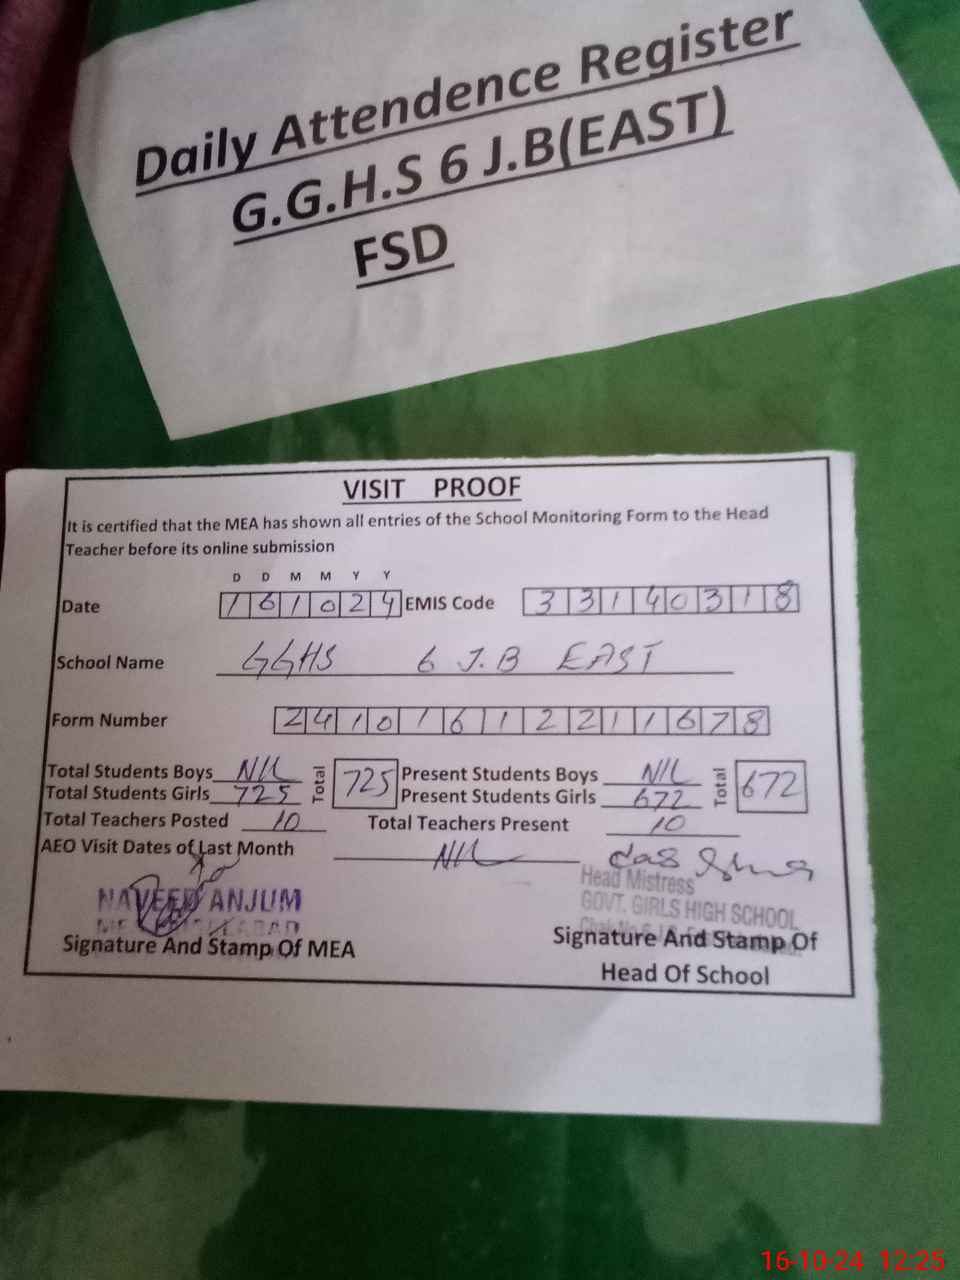 Daily Attendence Register
G.G.H.S 6 J.B(EAST)
FSD
VISIT PROOF
It is certified that the MEA has shown all entries of the School Monitoring Form to the Head
Teacher before its online submission
D D M M Y Y
Date 161024 EMIS Code 33140318
School Name GGHS 6 J.B EAST
Form Number 24101612211678
Total Students Boys NIL Total 725 Present Students Boys NIL Total 672
Total Students Girls 725 Present Students Girls 672
Total Teachers Posted 10 Total Teachers Present 10
AEO Visit Dates of Last Month NIL
Head Mistress
NAVEED ANJUM GOVT. GIRLS HIGH SCHOOL
Signature And Stamp Of MEA Signature And Stamp Of
Head Of School
16-10-24 12:25